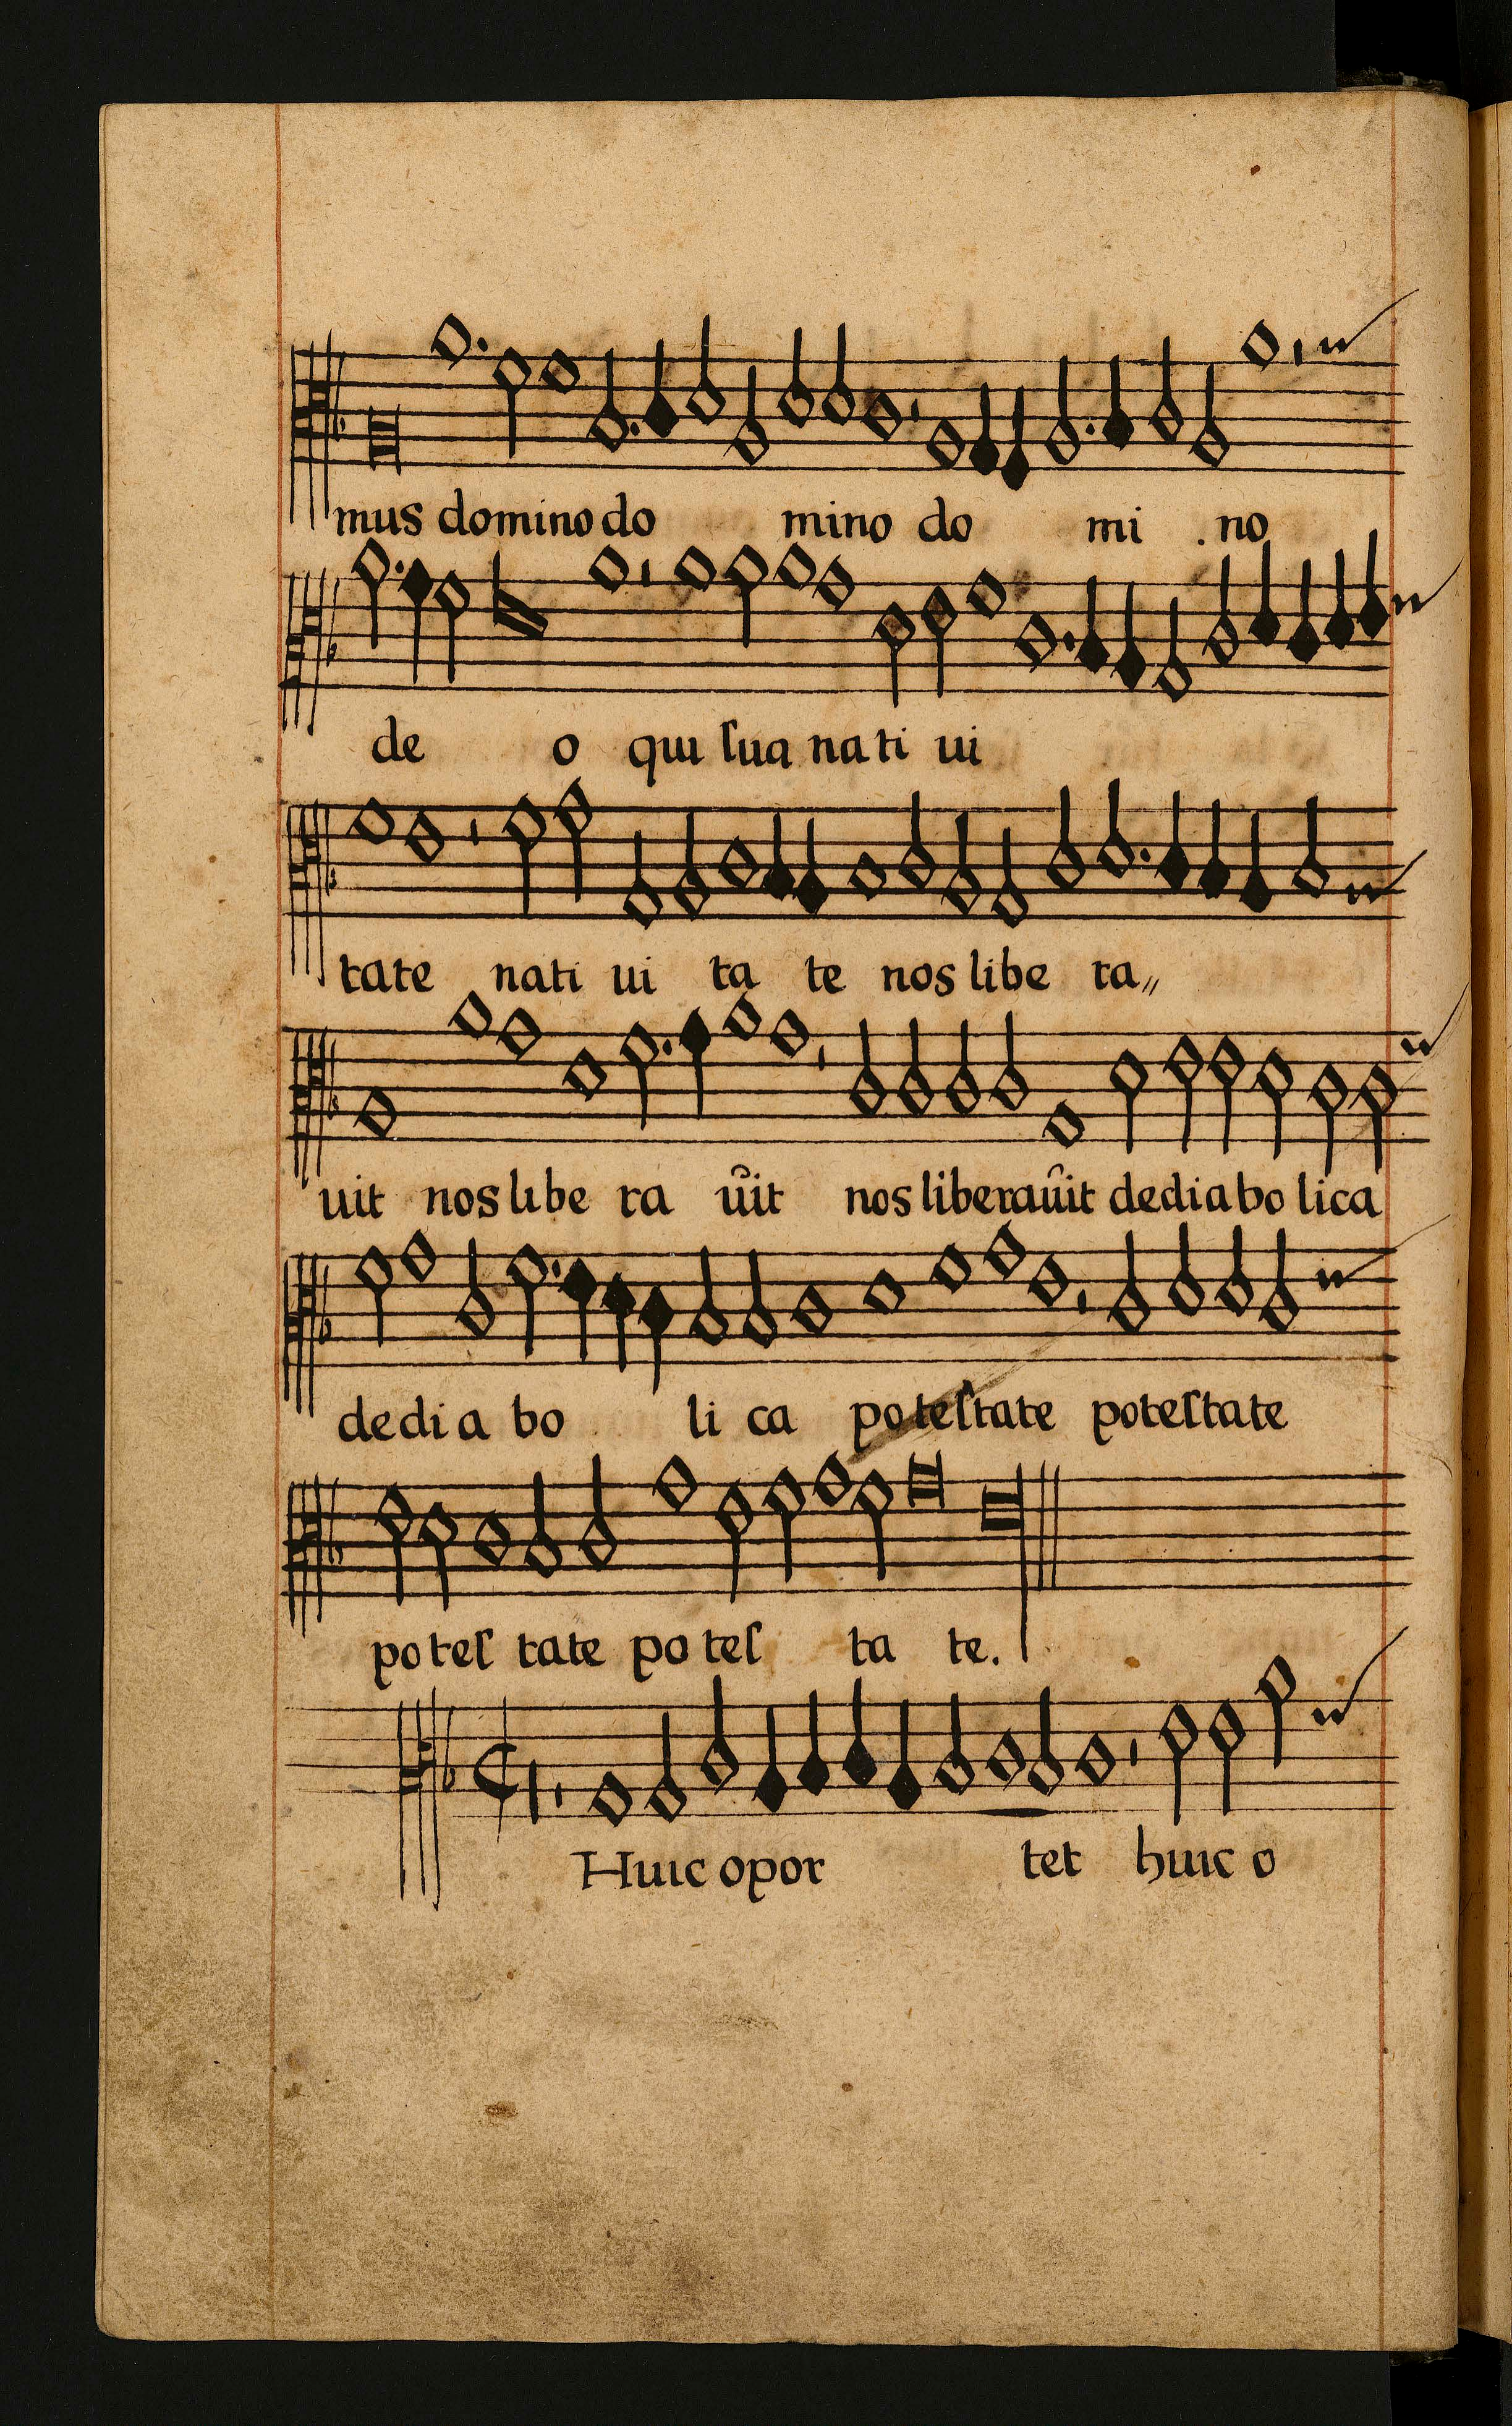 mus domino do mino do mi . no
de o qui ſua na ti ui
tate nati ui ta te nos libe ra,,
uit nos libe ra ûit nos liberaûit dediabo lica
dedi a bo li ca poteſtate poteſtate
poteſ tate po teſ ta te.
Huic opor tet huic o